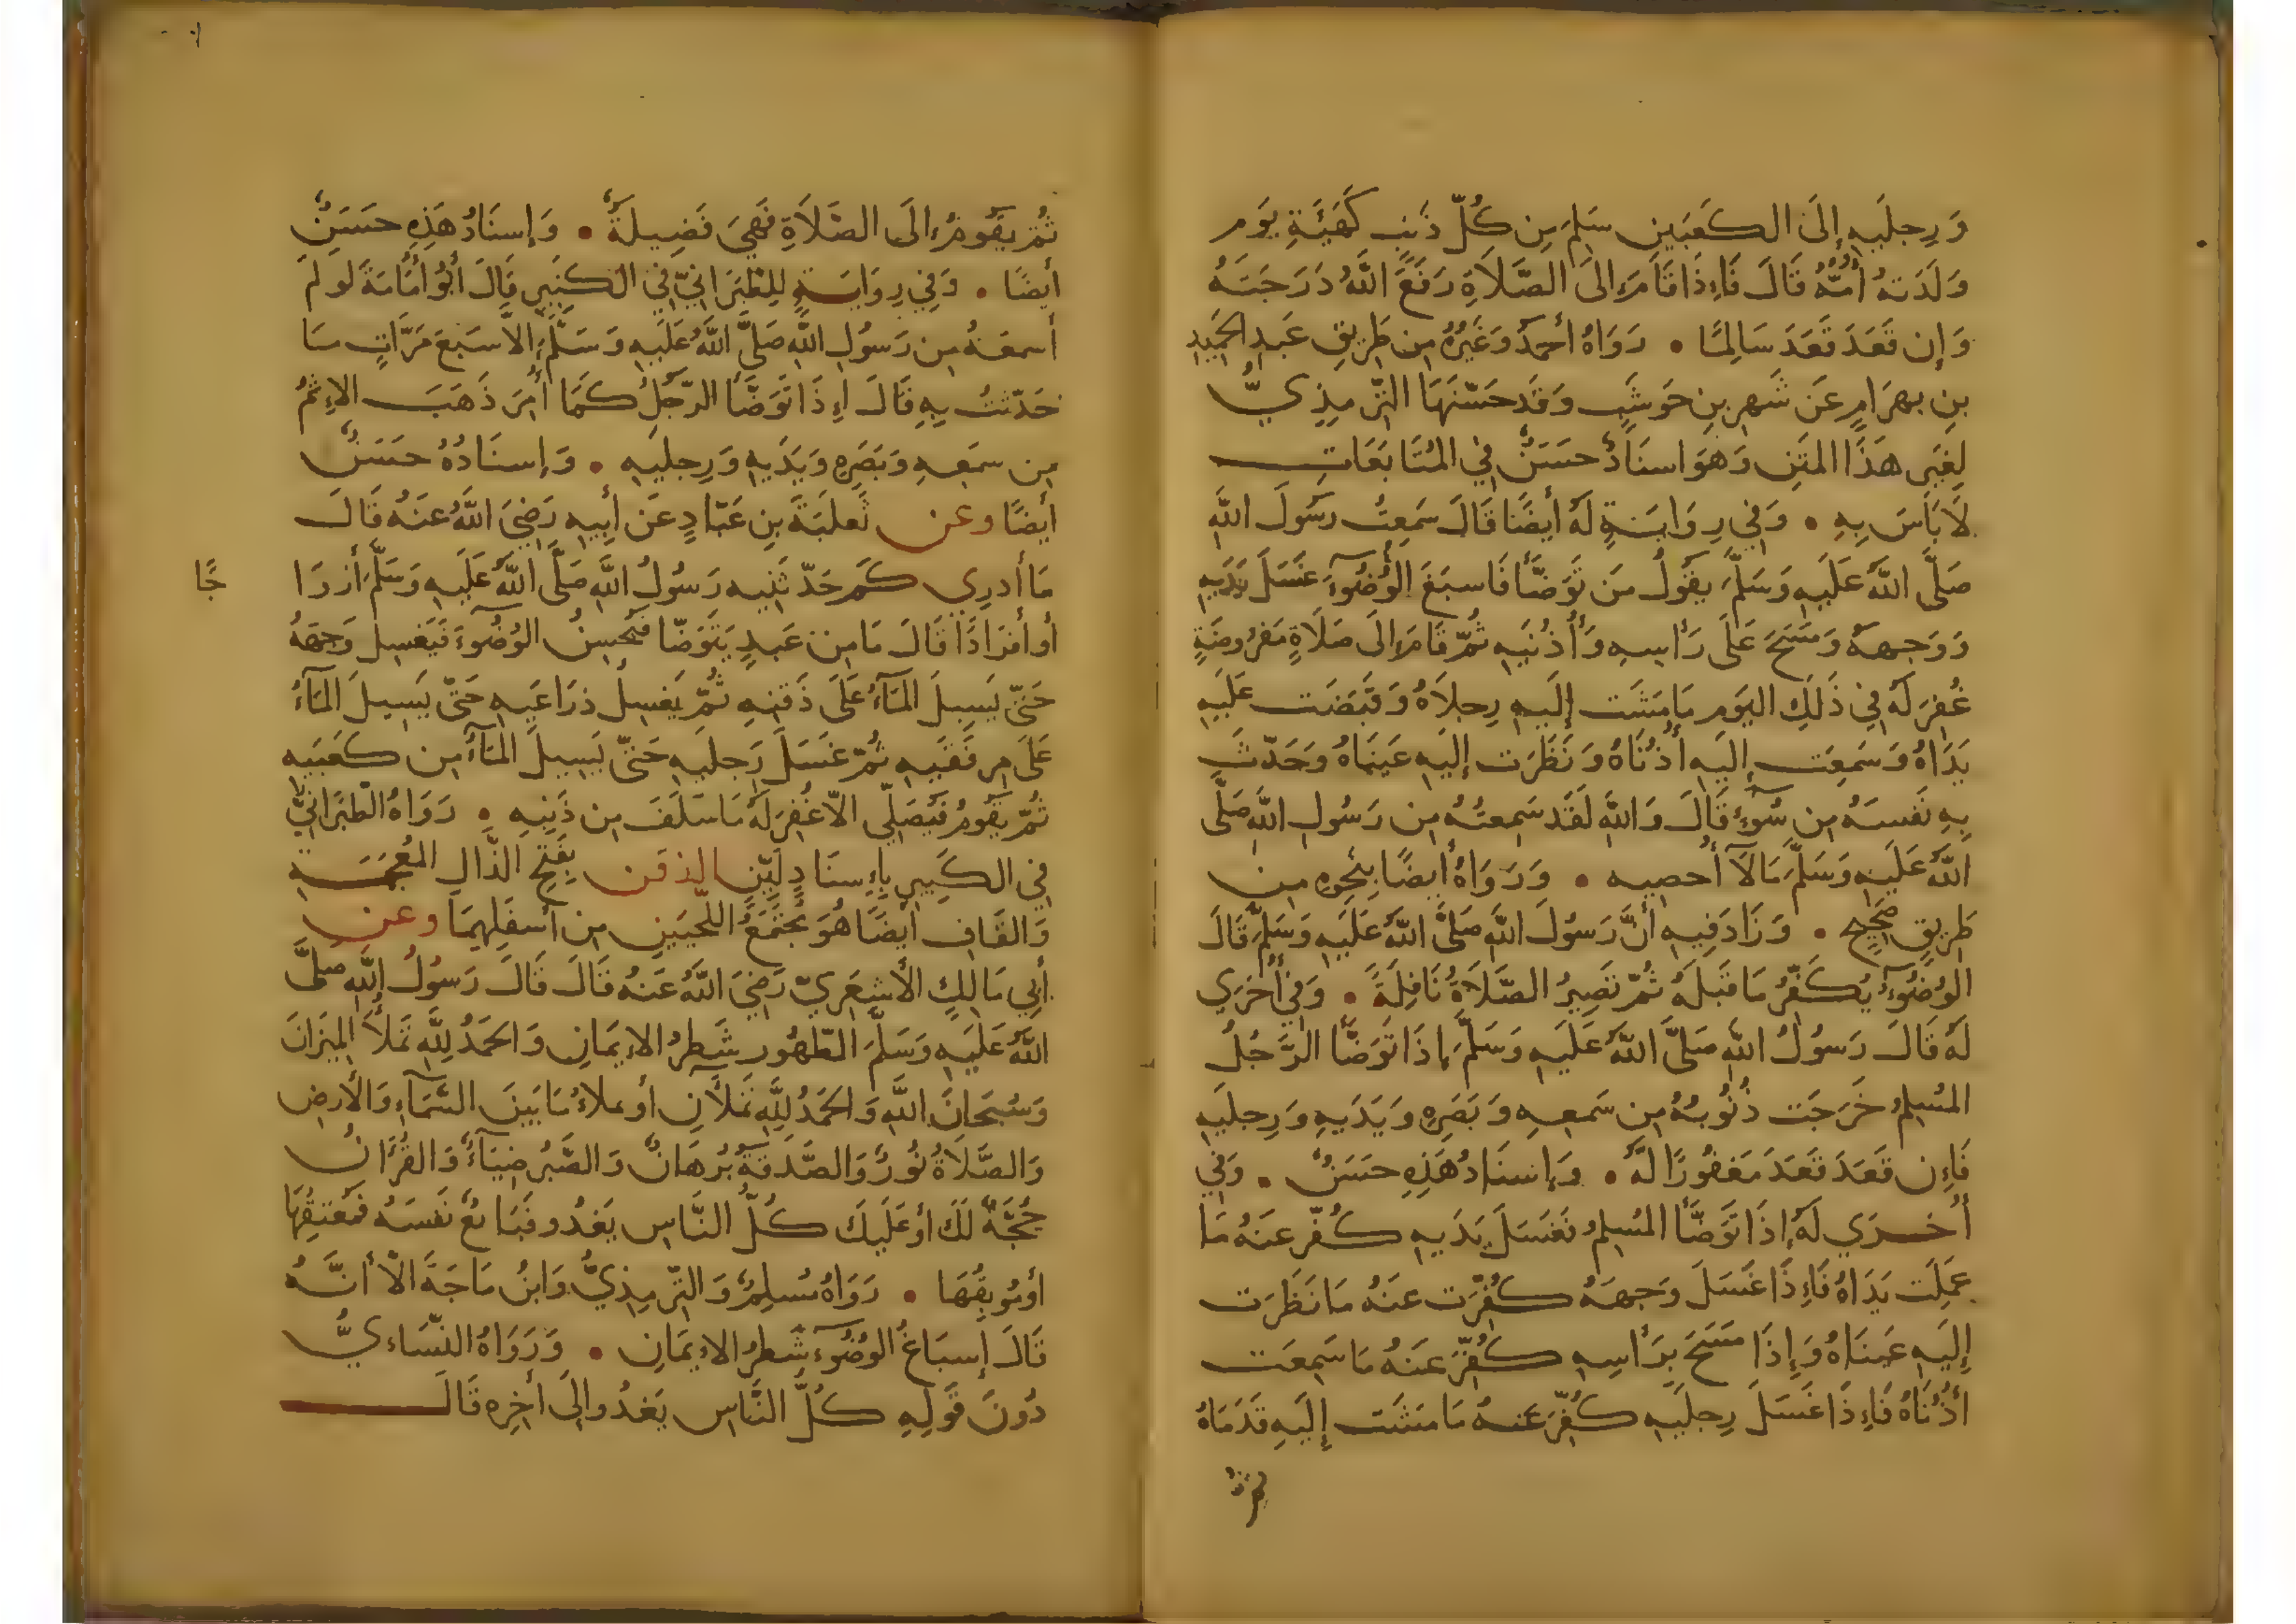 وَرِجلَيهِ إلَى الكَعبَين سَلِمَ مِن كُلِّ ذَنبٍ كَهَيئَةِ يَومِ
وَلَدَتهُ أُمُّهُ قَالَ فَإِذَا قَامَ إلىَ الصَّلَاةِ رَفَعَ اللَّهُ دَرَجَتَهُ
وَإن قَعَدَ قَعَدَ سَالِمًا • رَوَاهُ أحمَدُ وَغَيرُهُ مِن طَرِيقِ عَبدِ الحَمِيدِ
بنِ بهرَامٍ عَن شَهرِ بنِ حَوشَبٍ وَقَد حَسَّنَهَا التِّرمِذِيُّ
لِغَيرِ هَذَا المَتنِ وَهوَ اسنَادٌ حَسَنٌ فِي المُتَابَعَاتِ
لَا بَأسَ بِهِ • وَفِي رِوَايَةٍ لَهُ أيضًا قَالَ سَمِعتُ رَسُولَ اللَّهِ
صَلَّى اللَّهُ عَلَيهِ وَسَلَّمَ يقُولُ مَن تَوَضَّأ فَاسبَغَ الوُضُوءَ غَسَلَ يَدَيهِ
وَوَجهَهُ وَمَسَحَ عَلَى رَأسِهِ وَأُذُنَيهِ ثُمَّ قَامَ إلَى صَلَاةٍ مَفرُوضَةٍ
غُفِرَ لَهُ فِي ذَلِكَ اليَومِ مَا مَشَت إلَيهِ رِجلَاهُ وَقَبَضَت عَلَيهِ
يَدَاهُ وَسَمِعَت إلَيهِ أُذُنَاهُ وَنَظَرَت إلَيهِ عَينَاهُ وَحَدَّثَ
بِهِ نَفسَهُ مِن سُوءٍ قَالَ وَاللَّهِ لَقَد سَمِعتُهُ مِن رَسُولِ اللَّهِ صَلَّى
اللَّهُ عَلَيهِ وَسَلَّمَ مَالَا أُحصِيهِ • وَرَوَاهُ أيضًا بِنَحوِهِ مِن
طَرِيقٍ صَحِيحٍ • وَزَادَ فِيهِ أنَّ رَسُولَ اللَّهِ صَلَّى اللَّهُ عَلَيهِ وَسَلَّمَ قَالَ
الوُضُوءُ يُكَفِّرُ مَا قَبلَهُ ثُمَّ تَصِيرُ الصَّلَاةُ نَافِلَةً • وَفِي أُخرَي
لَهُ قَالَ رَسُولُ اللَّهِ صَلَّى اللَّهُ عَلَيهِ وَسَلَّمَ إذَا تَوَضَّأ الرَّجُلُ
المُسلِمُ خَرَجَت ذُنُوبُهُ مِن سَمعِهِ وَبَصَرِهِ وَيَدَيهِ وَرِجلَيهِ
فَإن قَعَدَ قَعَدَ مَغفُورًا لَهُ • وَإسنَادُ هَذِهِ حَسَنٌ • وَفِي
أُخرَي لَهُ إذَا تَوَضَّأ المُسلِمُ فَغَسَلَ يَدَيهِ كُفِّرَ عَنهُ مَا
عَمِلَت يَدَاهُ فَإِذَا غَسَلَ وَجهَهُ كُفِّرَت عَنهُ مَا نَظَرَت
إلَيهِ عَينَاهُ وَإِذَا مَسَحَ بِرَأسِهِ كُفِّرَ عَنهُ مَا سَمِعَت
أُذُنَاهُ فَإِذَا غَسَلَ رِجلَيهِ كُفِّرَ عَنهُ مَا مَشَت إلَيهِ قَدَمَاهُ
ثم
ثُمَّ يَقُومُ إلَى الصَّلَاةِ فَهِيَ فَضِيلَةٌ • وَإسنَادُ هَذِهِ حَسَنٌ
أيضًا • وَفِي رِوَايَةٍ لِلطَّبَرَانِيِّ فِي الكَبِيرِ قَالَ أبُو أُمَامَةَ لَو لَم
أسمَعهُ مِن رَسُولِ اللَّهِ صَلَّى اللَّهُ عَلَيهِ وَسَلَّمَ إلاَّ سَبعَ مَرَّاتٍ مَا
حَدَّثتُ بِهِ قَالَ إِذَا تَوَضَّأ الرَّجُلُ كَمَا أُمِرَ ذَهَبَ الإِثمُ
مِن سَمعِهِ وَبَصَرِهِ وَيَدَيهِ وَرِجلَيهِ • وَإسنَادُهُ حَسَنٌ
أيضًا وعن ثَعلَبَةَ بنِ عَبَّادٍ عَن أبِيهِ رَضِيَ اللَّهُ عَنهُ قَالَ
مَا أدرِي كَم حَدَّثَنِيهِ رَسُولُ اللَّهِ صَلَّى اللَّهُ عَلَيهِ وَسَلَّمَ أزوَا
جًا
أو أفرَادًا قَالَ مَا مِن عَبدٍ يَتَوَضَّا فَيُحسِنُ الوُضُوءَ فَيَغسِل وَجهَهُ
حَتَّى يَسِيلَ المَآءُ عَلَى ذَقنِهِ ثُمَّ يَغسِل ذِرَاعَيهِ حَتَّى يَسِيلَ المَآءُ
عَلَى مِرفَقَيهِ ثُمَّ غَسَلَ رِجلَيهِ حَتَّى يَسِيلَ المَآءُ مِن كَعبَيهِ
ثُمَّ يَقُومُ فَيُصَلِّي إلَّا غُفِرَ لَهُ مَا سَلَفَ مِن ذَنبِهِ • رَوَاهُ الطَّبَرَانِيُّ
فِي الكَبِيرِ بِإِسنَادٍ لَيِّنٍ الذقن بِفَتحِ الذَّالِ المُعجَمَةِ
وَالقَافِ أيضًا هُوَ مُجتَمَعُ اللَّحيَينِ مِن أسفَلِهِمَا وعن
أبِي مَالِكٍ الأَشعَرِيِّ رَضِيَ اللَّهُ عَنهُ قَالَ قَالَ رَسُولُ اللَّهِ صَلَّى
اللَّهُ عَلَيهِ وَسَلَّمَ الطّهُور شَطرُ الإيمَانِ وَالحَمدُ لِلَّهِ تَملَأُ المِيزَانَ
وَسُبحَانَ اللَّهِ وَالحَمدُ لِلَّهِ تَملَآنِ أو تملأُ مَا بَينَ السَّمَاءِ وَالأَرضِ
وَالصَّلَاةُ نُورٌ وَالصَّدَقَةُ بُرهَانٌ وَالصَّبرُ ضِيَآءٌ وَالقُرآنُ
حُجَّةٌ لَكَ أو عَلَيكَ كُلُّ النَّاسِ يَغدُو فَبَائِعٌ نَفسَهُ فَمُعتِقُهَا
أو مُوبِقُهَا • رَوَاهُ مُسلِمٌ وَالتِّرمِذِيُّ وَابنُ مَاجَةَ الاَّ أنَّهُ
قَالَ إسبَاغُ الوُضُوءِ شَطرُ الإيمَانِ • وَرَوَاهُ النِّسَاءيُّ
دُونَ قَولِهِ كُلُّ النَّاسِ يَغدُو إلَى أخِرِه قَالَ